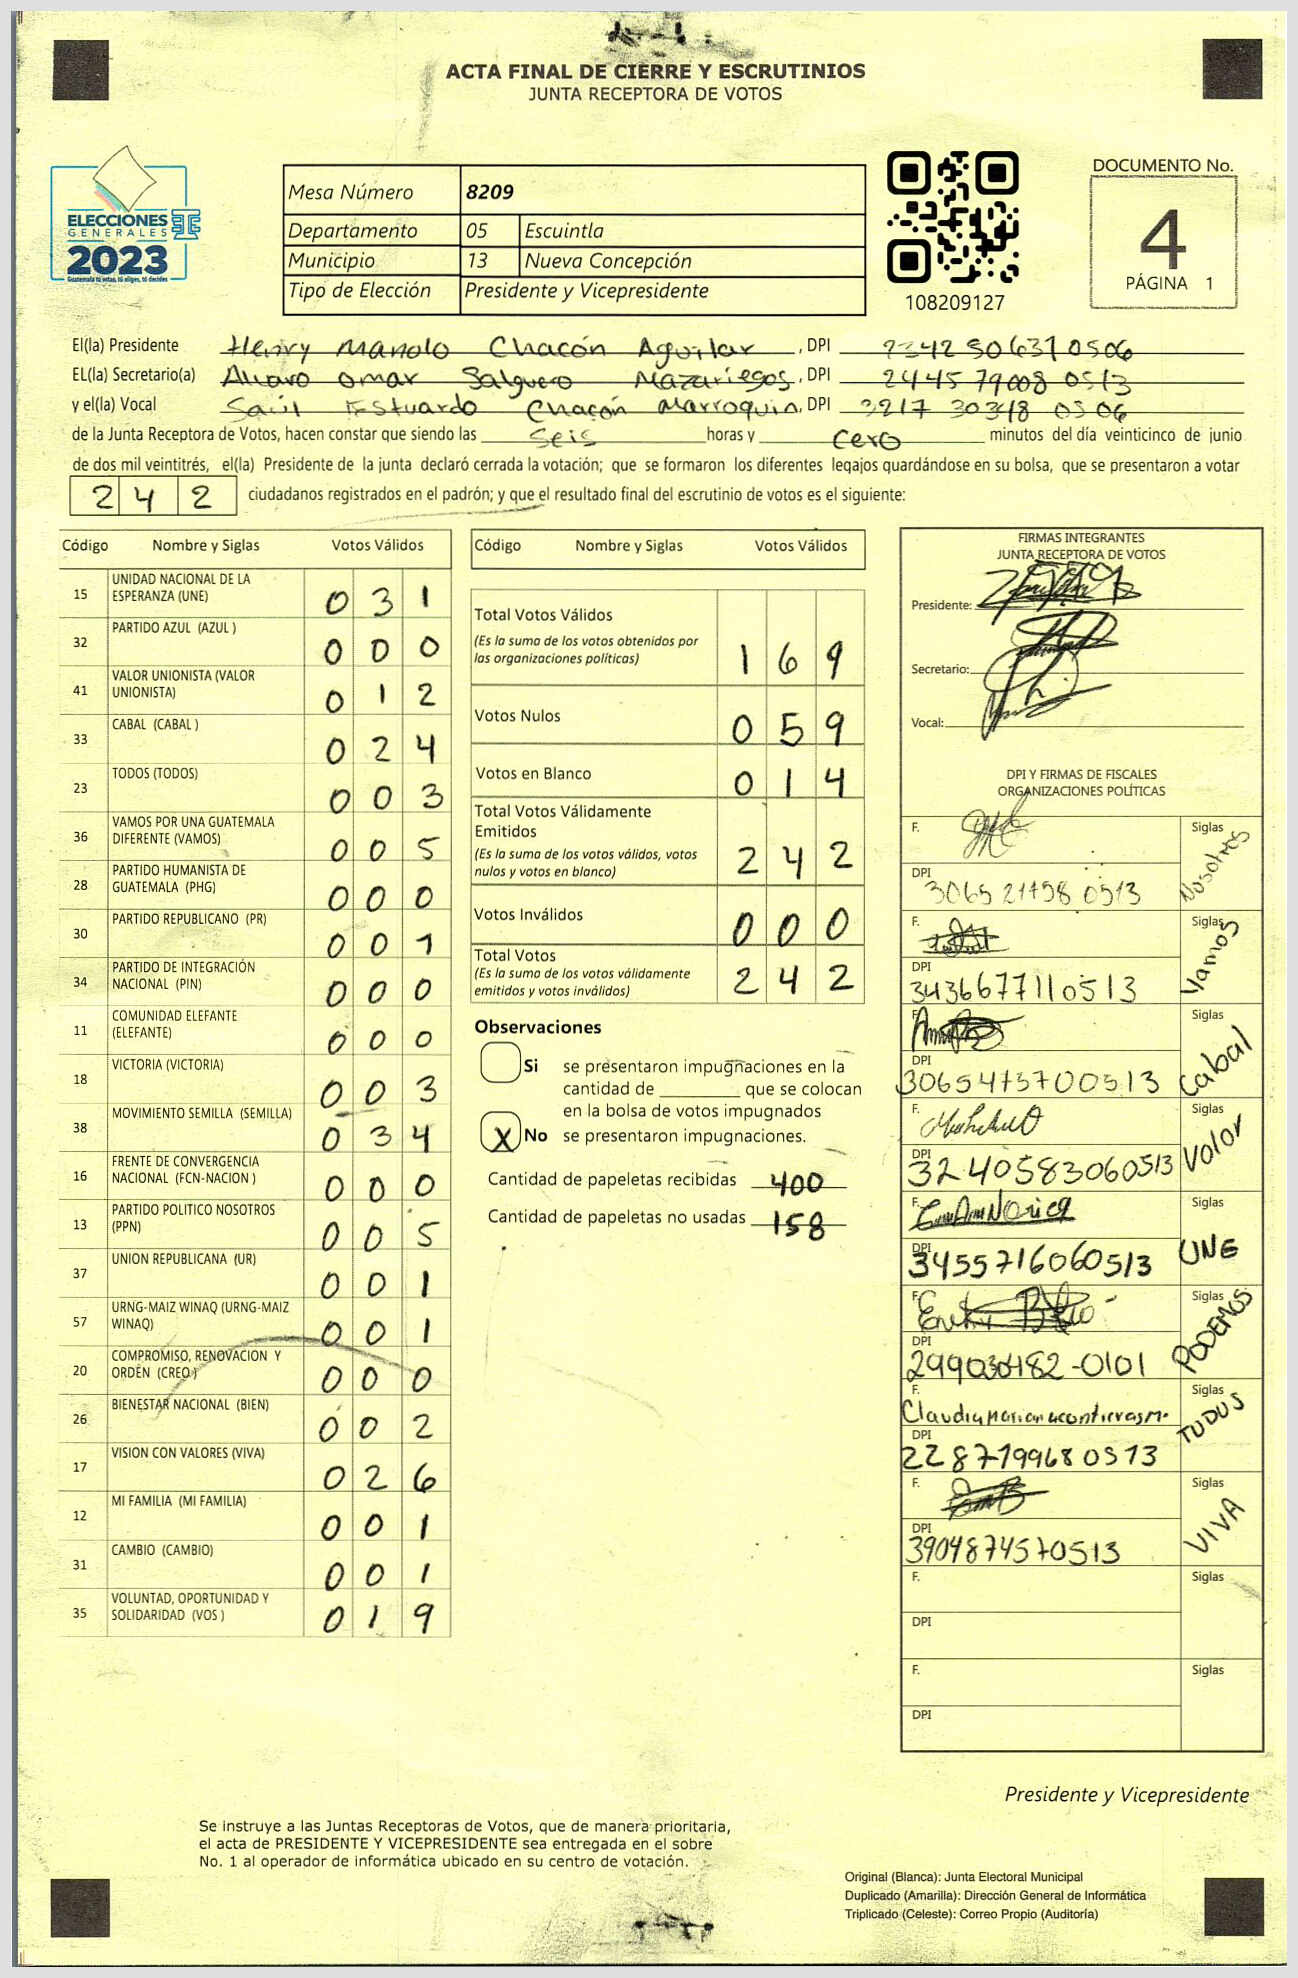 ACTA FINAL DE CIERRE Y ESCRUTINIOS
JUNTA RECEPTORA DE VOTOS
ELECCIONES
GENERALES
2023
Guatemala tú votas, tú eliges, tú decides
Mesa Número 8209
Departamento 05 Escuintla
Municipio 13 Nueva Concepción
Tipo de Elección Presidente y Vicepresidente
108209127
DOCUMENTO No.
4
PÁGINA 1
El(la) Presidente Henry Manolo Chacón Aguilar, DPI 2342 50637 0506
EL(la) Secretario(a) Alvaro Omar Salguero Mazariegos, DPI 2445 79008 0513
y el(la) Vocal Saúl Estuardo Chacón Marroquin, DPI 3217 30348 0506
de la Junta Receptora de Votos, hacen constar que siendo las Seis horas y cero minutos del día veinticinco de junio
de dos mil veintitrés, el(la) Presidente de la junta declaró cerrada la votación; que se formaron los diferentes legajos guardándose en su bolsa, que se presentaron a votar
242 ciudadanos registrados en el padrón; y que el resultado final del escrutinio de votos es el siguiente:
Código Nombre y Siglas Votos Válidos
15 UNIDAD NACIONAL DE LA ESPERANZA (UNE) 031
32 PARTIDO AZUL (AZUL ) 000
41 VALOR UNIONISTA (VALOR UNIONISTA) 012
33 CABAL (CABAL ) 024
23 TODOS (TODOS) 003
36 VAMOS POR UNA GUATEMALA DIFERENTE (VAMOS) 005
28 PARTIDO HUMANISTA DE GUATEMALA (PHG) 000
30 PARTIDO REPUBLICANO (PR) 001
34 PARTIDO DE INTEGRACIÓN NACIONAL (PIN) 000
11 COMUNIDAD ELEFANTE (ELEFANTE) 000
18 VICTORIA (VICTORIA) 003
38 MOVIMIENTO SEMILLA (SEMILLA) 034
16 FRENTE DE CONVERGENCIA NACIONAL (FCN-NACION ) 000
13 PARTIDO POLITICO NOSOTROS (PPN) 005
37 UNION REPUBLICANA (UR) 001
57 URNG-MAIZ WINAQ (URNG-MAIZ WINAQ) 001
20 COMPROMISO, RENOVACION Y ORDEN (CREO ) 000
26 BIENESTAR NACIONAL (BIEN) 002
17 VISION CON VALORES (VIVA) 026
12 MI FAMILIA (MI FAMILIA) 001
31 CAMBIO (CAMBIO) 001
35 VOLUNTAD, OPORTUNIDAD Y SOLIDARIDAD (VOS ) 019
Código Nombre y Siglas Votos Válidos
Total Votos Válidos 169
(Es la suma de los votos obtenidos por
las organizaciones políticas)
Votos Nulos 059
Votos en Blanco 014
Total Votos Válidamente
Emitidos 242
(Es la suma de los votos válidos, votos
nulos y votos en blanco)
Votos Inválidos 000
Total Votos 242
(Es la suma de los votos válidamente
emitidos y votos inválidos)
Observaciones
Si se presentaron impugnaciones en la
cantidad de ________ que se colocan
en la bolsa de votos impugnados
X No se presentaron impugnaciones.
Cantidad de papeletas recibidas 400
Cantidad de papeletas no usadas 158
FIRMAS INTEGRANTES
JUNTA RECEPTORA DE VOTOS
Presidente:
Secretario:
Vocal:
DPI Y FIRMAS DE FISCALES
ORGANIZACIONES POLÍTICAS
F. Siglas Nosotros
DPI
F. Siglas Vamos
DPI 3436677110513
F. Siglas Cabal
DPI
F. Siglas Valor
DPI 3240583060513
F. Siglas UNE
DPI 3455716060513
F. Siglas PODEMOS
DPI
F. Siglas TUDUS
DPI 2287199680513
F. Siglas VIVA
DPI 3904874570513
F. Siglas
DPI
F. Siglas
DPI
Presidente y Vicepresidente
Se instruye a las Juntas Receptoras de Votos, que de manera prioritaria,
el acta de PRESIDENTE Y VICEPRESIDENTE sea entregada en el sobre
No. 1 al operador de informática ubicado en su centro de votación.
Original (Blanca): Junta Electoral Municipal
Duplicado (Amarilla): Dirección General de Informática
Triplicado (Celeste): Correo Propio (Auditoría)